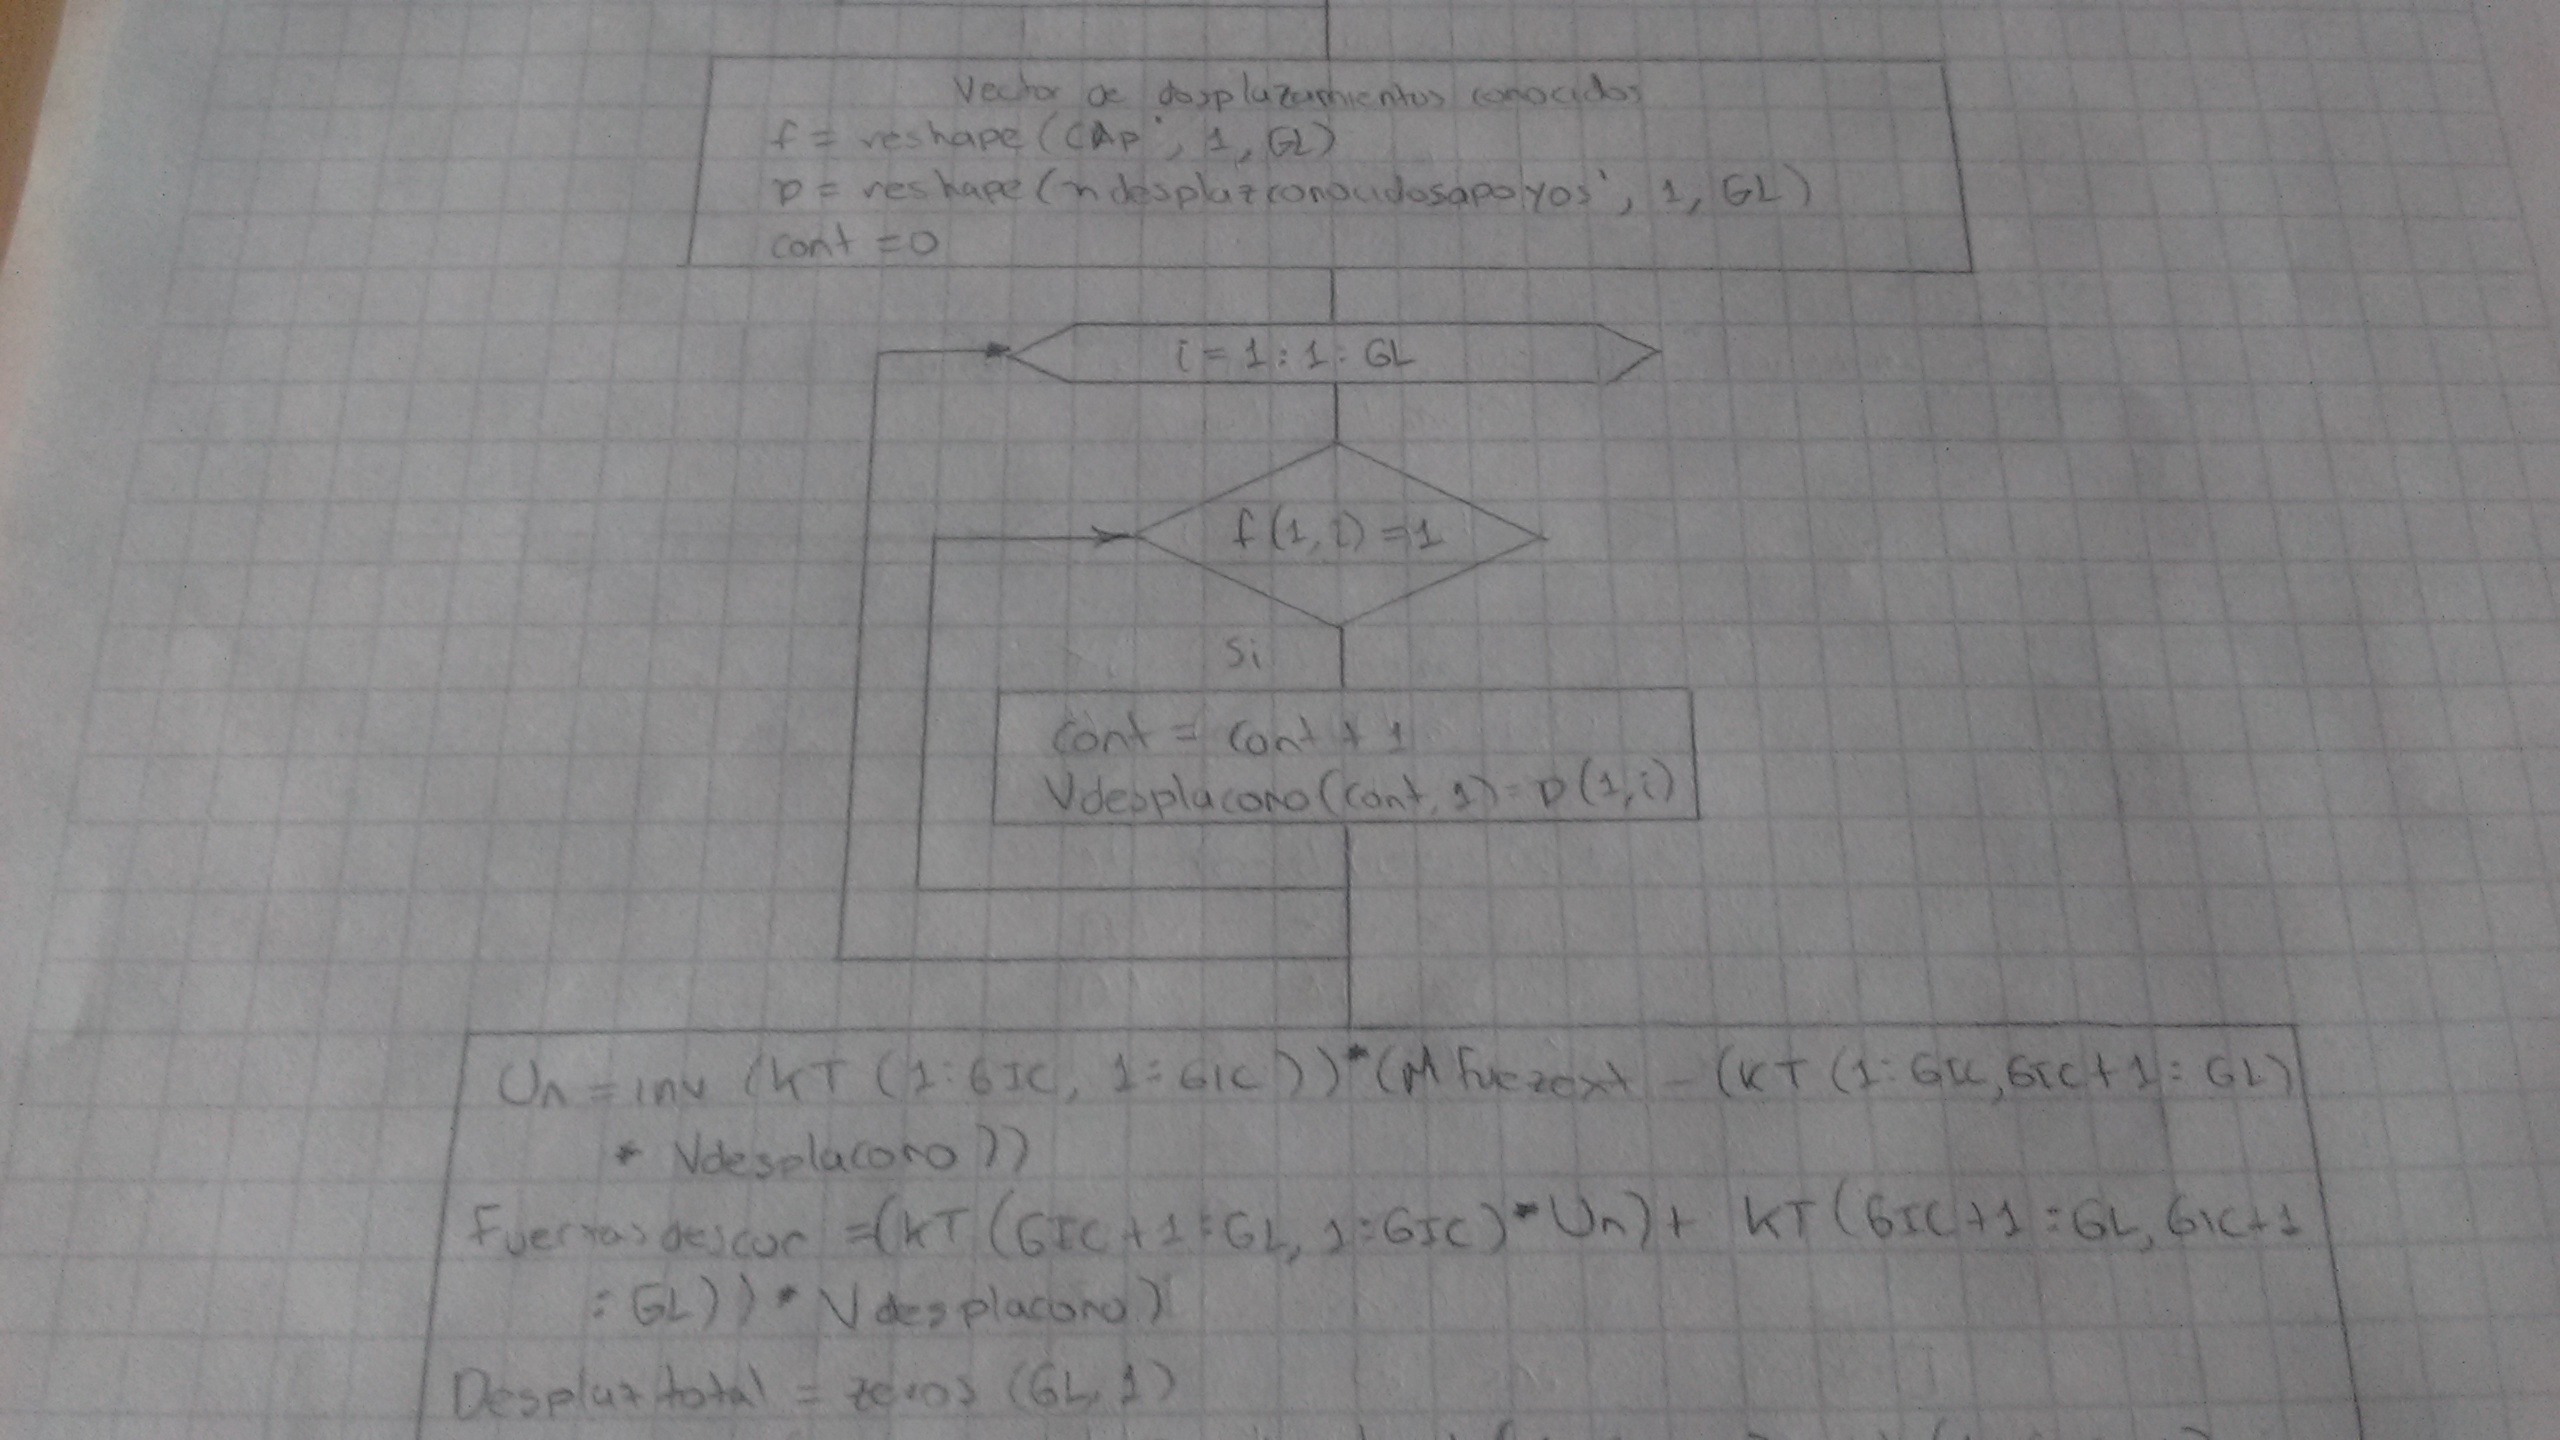 Vector de desplazamientos conocidos
f = reshape (CAp', 1, GL)
D = reshape (ndesplazconocidosapoyos', 1, GL)
cont = 0
i = 1 : 1 : GL
f (1, i) = 1
Si
cont = cont + 1
Vdesplacono (cont, 1) = D (1, i)
Un = inv (KT (1:GIC, 1:GIC)) * (MFuezext - (KT (1:GIC, GIC+1 : GL)
* Vdesplacono))
Fuerzasdescon = (KT (GIC+1 : GL, 1:GIC) * Un) + KT (GIC+1 : GL, GIC+1
: GL)) * Vdesplacono)
Desplaztotal = zeros (GL, 1)